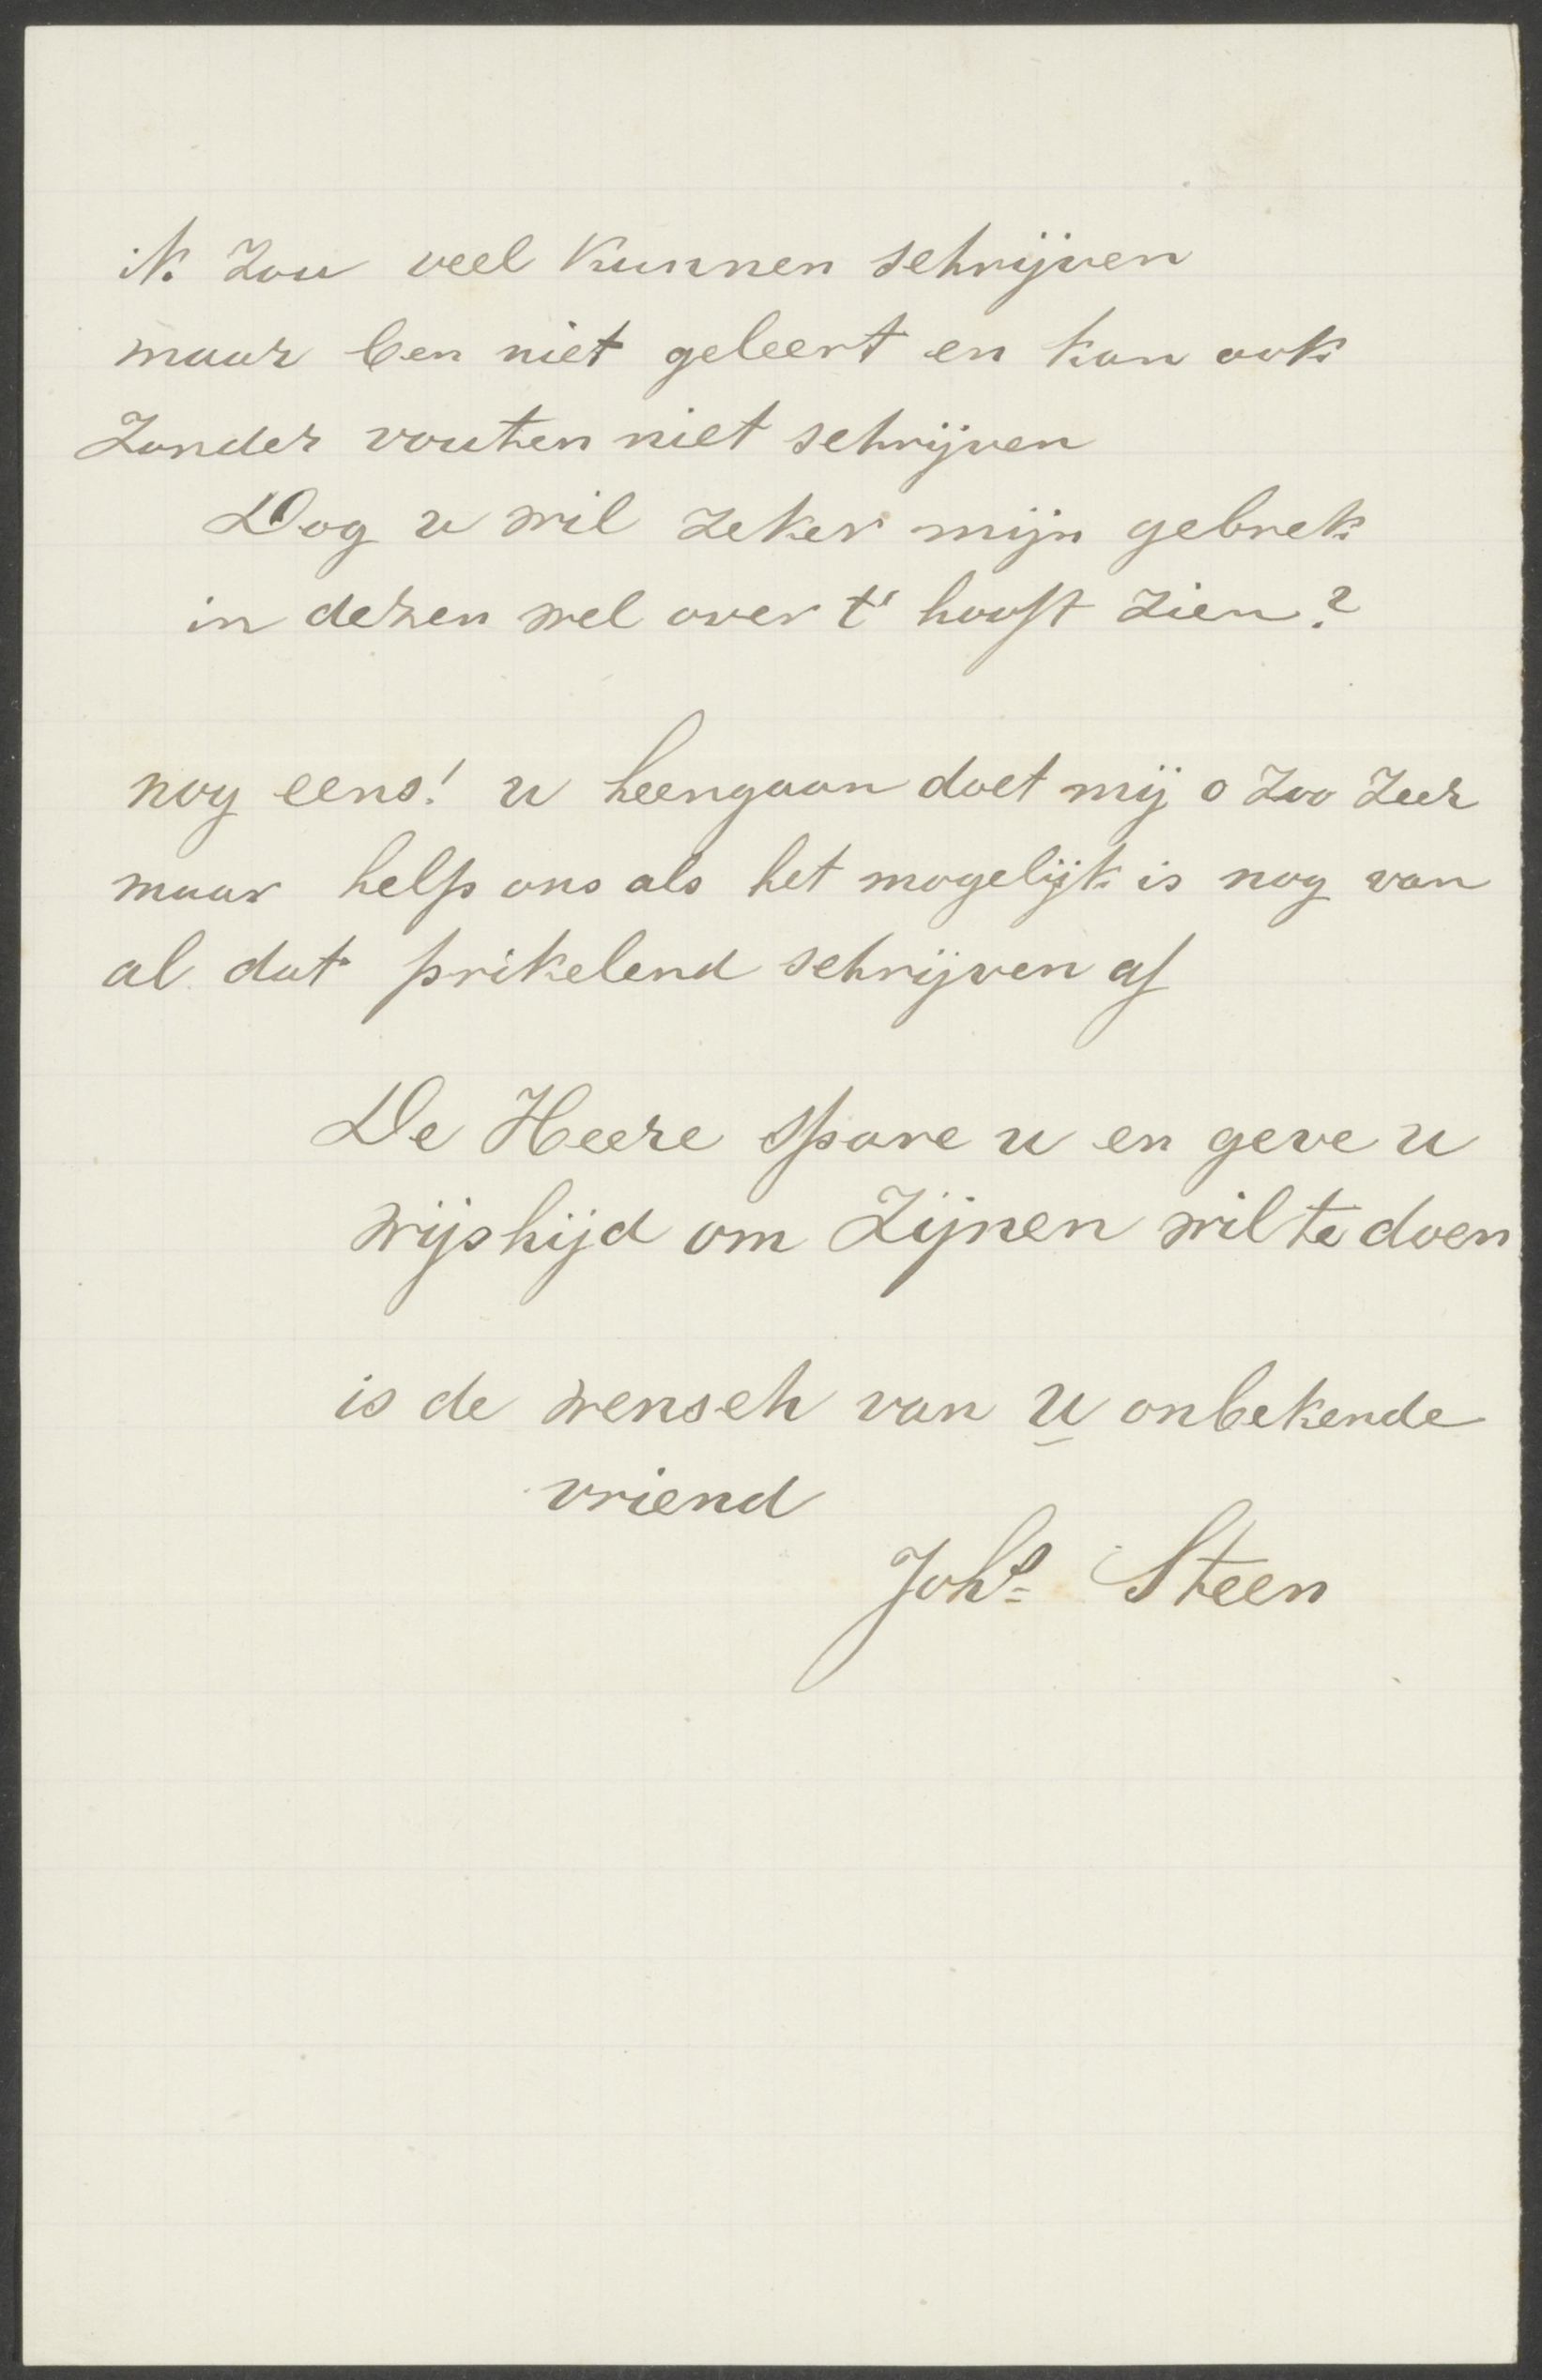 ik zou veel kunnen schrijven
maar ben niet geleert en kan ook
zonder vouten niet schrijven
Dog u wil zeker mijn gebrek
in dezen wel over t' hooft zien?
nog eens! u heengaan doet mij o zoo zeer
maar help ons als het mogelijk is nog van
al dat prikelend schrijven af
De Heere spare u en geve u
wijshijd om Zijnen wil te doen
is de wensch van U onbekende
vriend
Johs Steen